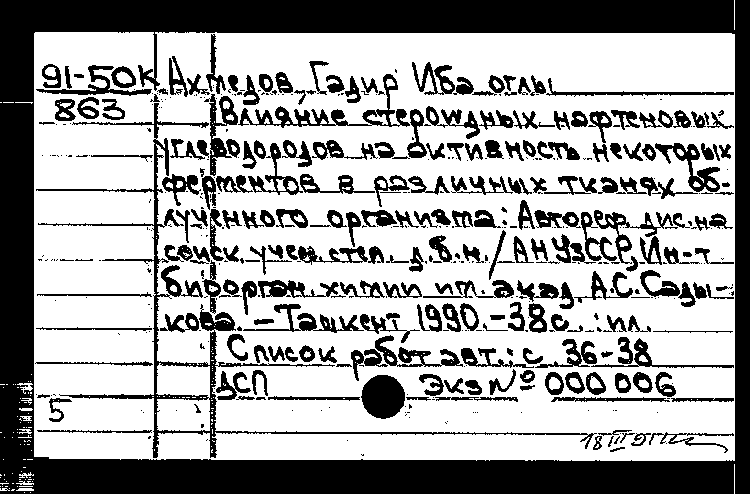 91-50к Ахмедов, Гадир Иба оглы
863 Влияние стероидных нафтеновых
углеводородов на активность некоторых
ферментов в различных тканях об-
лученного организма: Автореф. дис. на
соиск. учен. степ. д.б.н. / АН УзССР, Ин-т
биоорган. химии им. акад. А.С. Сады-
кова. – Ташкент, 1990. – 38с. : ил.
Список работ авт.: с. 36-38
ДСП Экз № 000006
5
18 III 91